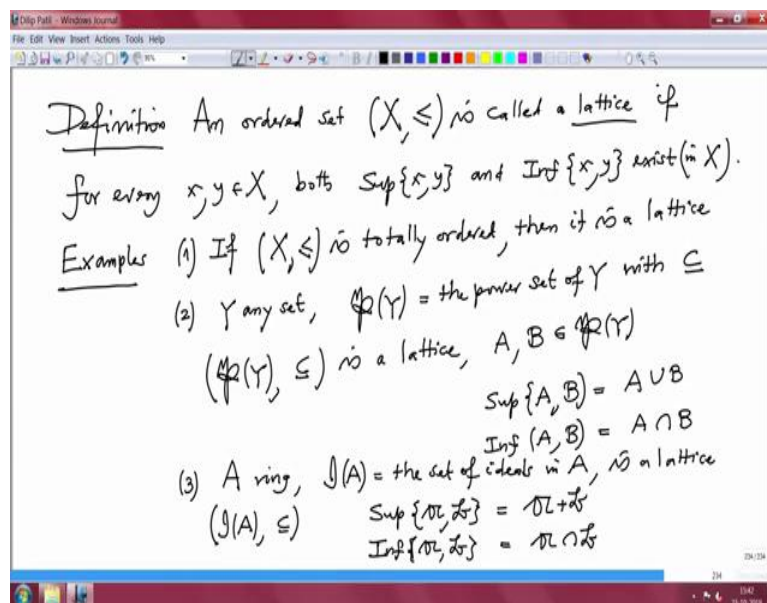 Dilip Patil - Windows Journal
File Edit View Insert Actions Tools Help
Definition An ordered set (X, ≤) is called a lattice if
for every x, y ∈ X, both Sup{x, y} and Inf{x, y} exist (in X).
Examples (1) If (X, ≤) is totally ordered, then it is a lattice
(2) Y any set, 𝔓(Y) = the power set of Y with ⊆
(𝔓(Y), ⊆) is a lattice, A, B ∈ 𝔓(Y)
Sup{A, B} = A ∪ B
Inf(A, B) = A ∩ B
(3) A ring, 𝓘(A) = the set of ideals in A, is a lattice
(𝓘(A), ⊆) Sup{𝔞, 𝔟} = 𝔞 + 𝔟
Inf{𝔞, 𝔟} = 𝔞 ∩ 𝔟
234/234
234
15:42